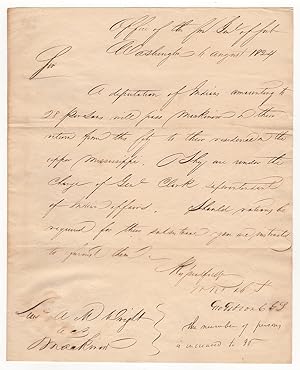 Office of the
Washington 4 August 1824
Sir
A deputation of Indians amounting to
28 persons will pass in their
return from this city to their residence on the
upper Mississippi. They are under the
charge of Genl Clark superintendent
of Indian affairs. Should rations be
required for their subsistence you are
to furnish them.
Respectfully
Geo Gibson C G S
Lieut A. M. Wright
the number of persons
is increased to 35